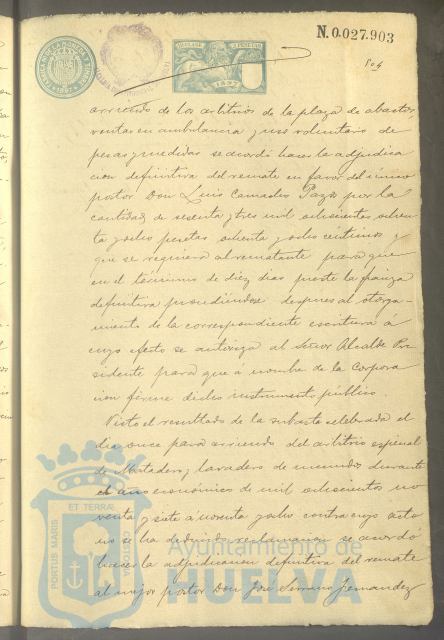 N.0.027.903
804
1897
arriendo de los arbitrios de la plaza de abastos,
ventas en ambulancia y uso voluntario de
pesas y medidas se acordó hacer la adjudica
cion definitiva del remate en favor del único
postor Don Luis Camacho Pazos por la
cantidad de sesenta y tres mil ochocientas ochen
ta y ocho pesetas ochenta y ocho centimos y
que se requiera al rematante para que
en el término de diez dias preste la fianza
definitiva procediendose despues al otorga-
miento de la correspondiente escritura á
cuyo efecto se autoriza al Señor Alcalde Pre
sidente para que á nombre de la Corpora
cion firme dicho instrumento público.
Visto el resultado de la subasta celebrada el
dia once para arriendo del arbitrio especial
de Matadero y lavadero de menudos durante
el año económico de mil ochocientos no
venta y siete á noventa y ocho contra cuyo acto
no se ha deducido reclamacion se acordó
hacer la adjudicacion definitiva del remate
al mejor postor Don José Serrano Fernandez
PORTUS MARIS ET TERRÆ CUSTODIA
Ayuntamiento de
HUELVA